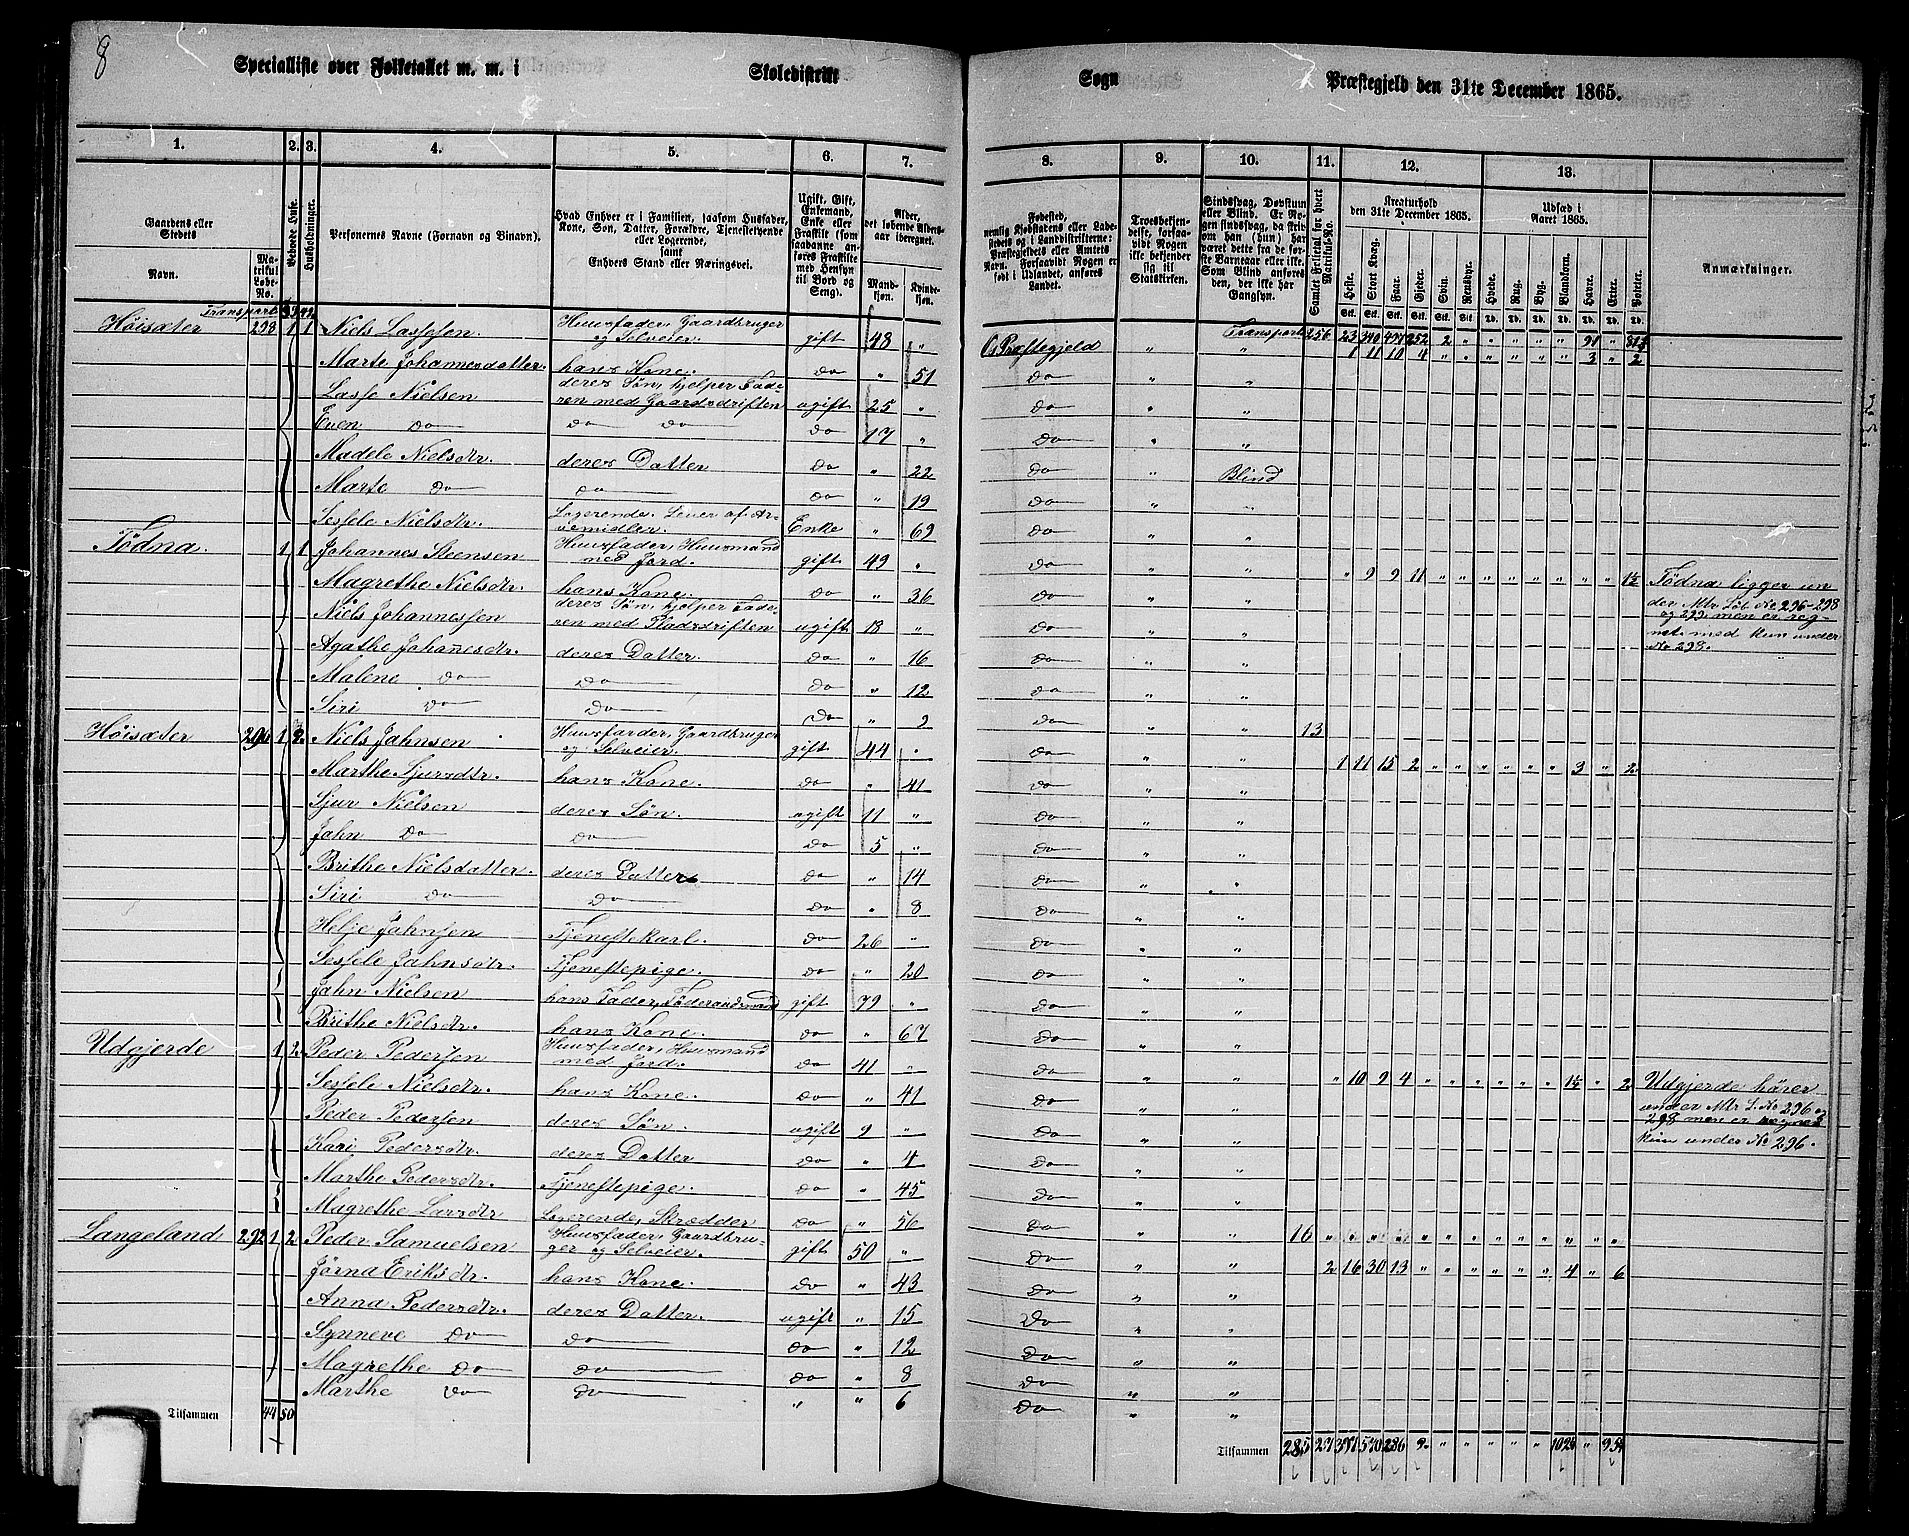 8
Specialliste over Folketallet m. m. i Skoledistrikt Sogn Præstegjeld den 31te December 1865.
1. 2. 3. 4. 5. 6. 7. 8. 9. 10. 11. 12. 13.
Gaardens eller Stedets
Navn. Matrikul Løbe-No.
Beboede Huse.
Husholdninger.
Personernes Navne (Fornavn og Tilnavn).
Hvad Enhver er i Familien, saasom Husfader, Kone, Søn, Datter, Forældre, Tjenestetyende eller Logerende, samt Enhvers Stand eller Næringsvei.
Ugift, Gift, Enkemand, Enke eller Fraskilt (som saadanne anføres Fraskilte med Hensyn til Bord og Seng).
Alder, det løbende Aldersaar iberegnet.
Mandkjøn. Kvindekjøn.
Fødested, nemlig Kjøbstadens eller Ladestedets og i Landdistrikterne: Præstegjeldets eller Amtets Navn. Forsaavidt Nogen er født i Udlandet, anføres Landet.
Troesbekjendelse, forsaavidt Nogen ikke bekjender sig til Statskirken.
Sindssvag, Døvstum eller Blind. Er Nogen sindssvag, da skrives om han (hun) har været dette fra de første Barneaar eller ikke. Som Blind anføres den, der ikke har Gangsyn.
Samlet Folketal for hvert Matrikul-No.
Kreaturhold den 31te December 1865.
Heste. Stort Kvæg. Faar. Gjeder. Svin. Rensdyr.
Udsæd i Aaret 1865.
Hvede. Rug. Byg. Blandkorn. Havre. Erter. Poteter.
Anmærkninger.
Transport 39 42 Transport 256 23 340 474 252 2 " " " " " 91 "
Høisæter 298 1 1 Niels Lassesen Huusfader, Gaardbruger og Selveier gift 48 " Os Præstegjeld " " 1 11 10 4 " " " " " " 3 " 2
Marte Johannesdatter hans Kone. do " 51 do " "
Lasse Nielsen deres Søn, hjelper Faderen med Gaardsdriften ugift 25 " do " "
Even do do do do 17 " do " "
Madele Nielsdtr. deres Datter do " 22 do " Blind
Marte do do do " 19 do " "
Sessele Nielsdtr. Logerende. Lever af Arvemidler. Enke " 69 do " "
Tødna. 1 1 Johannes Steensen Huusfader, Huusmand med Jord. gift 49 " do " " " 9 9 11 " " " " " " " " 1½ Tødna ligger under Mtr Løb. No 296-298 og 299, men er regnet med kun under No 298.
Magrethe Nielsdtr. hans Kone. do " 36 do " "
Niels Johannessen deres Søn, hjelper Faderen med Pladsdriften ugift 18 " do " "
Agathe Johanesdtr. deres Datter. do " 16 do " "
Malene do do do " 12 do " "
Siri do do do " 9 do " " 13
Høisæter 296 1 2. Niels Jahnsen Huusfader, Gaardbruger og Selveier. gift 44 " do " " 1 11 15 2 " " " " " " 3 " 2
Marthe Sjursdtr. hans Kone. do " 41 do " "
Sjur Nielsen deres Søn. ugift 11 " do " "
Jahn do do do 5 " do " "
Brithe Nielsdatter. deres Datter do " 14 do " "
Siri do do do " 8 do " "
Helje Jahnsen Tjenestekarl. do 26 " do " "
Sessele Jahnsdtr. Tjenestepige. do " 20 do " "
Jahn Nielsen hans Fader, Føderaadsmand gift 79 " do " "
Brithe Nielsdtr. hans Kone. do " 67 do " "
Udgjerde 1 2. Peder Pedersen Huusfader, Huusmand med Jord. do 41 " do " " " 10 9 4 " " " " " " 1½ " 2 Udgjerde hører under Mtr L. No 296 og 298 men er regnet kun under No 296.
Sessele Nielsdtr. hans Kone do " 41 do " "
Peder Pedersen deres Søn. ugift 9 " do " "
Kari Pedersdtr. deres Datter do " 4 do " "
Marthe Pedersdtr. Tjenestepige. do " 45 do " "
Magrethe Larsdtr Logerende, Skrædder do " 56 do " " 16 " " " " " " " " " " " " "
Langeland 292 1 2 Peder Samuelsen Huusfader, Gaardbruger og Selveier. gift 50 " do " " 2 16 30 13 " " " " " " 4 " 6
Jørna Eriksdtr. hans Kone. do " 43 do " "
Anna Pedersdtr. deres Datter. ugift " 15 do " "
Synneve do do do " 12 do " "
Magrethe do do do " 8 do " "
Marthe do do " " 6 do " "
Tilsammen 44 50 Tilsammen 285 27